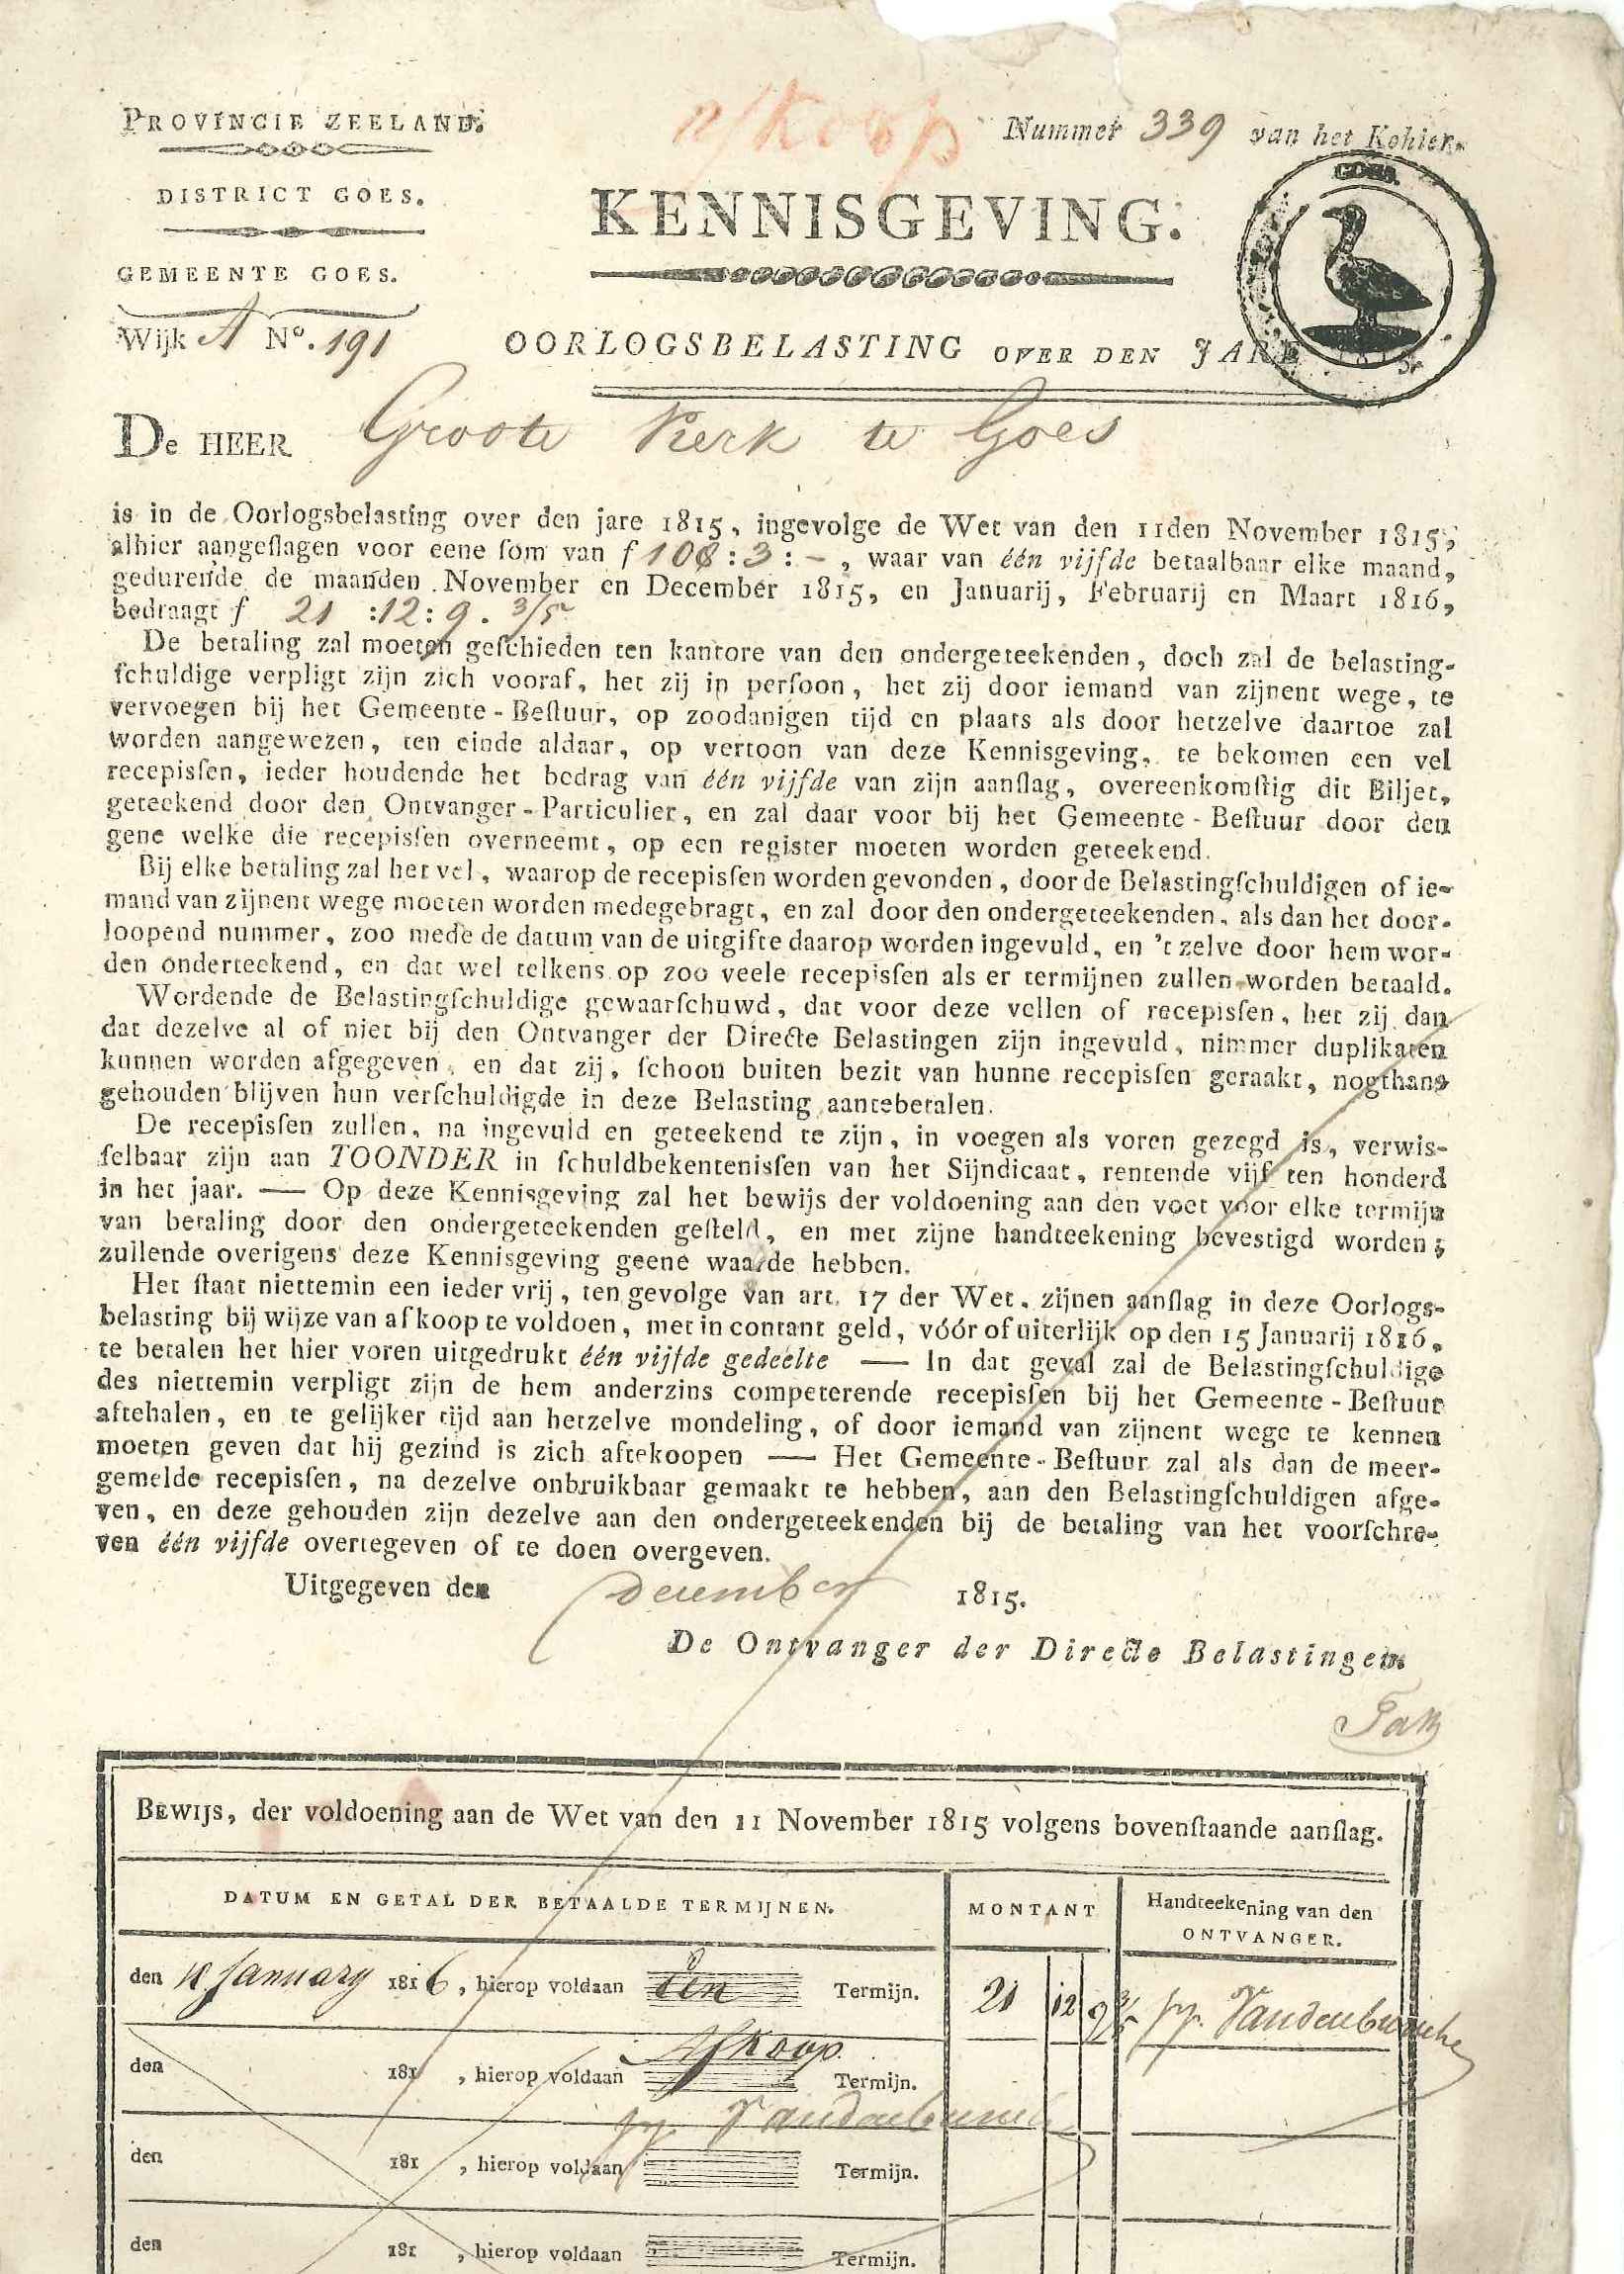 PROVINCIE ZEELAND.
DISTRICT GOES.
GEMEENTE GOES.
Wijk A No. 191
Nummer 339 van het Kohier.
GOES.
KENNISGEVING.
OORLOGSBELASTING OVER DEN JARE 1815.
DE HEER Groote Kerk te Goes
is in de Oorlogsbelasting over den jare 1815, ingevolge de Wet van den 11den November 1815,
alhier aangeslagen voor eene som van f 108:3:-, waar van één vijfde betaalbaar elke maand,
gedurende de maanden November en December 1815, en Januarij, Februarij en Maart 1816,
bedraagt f 21:12:9.3/5
De betaling zal moeten geschieden ten kantore van den ondergeteekenden, doch zal de belasting-
schuldige verpligt zijn zich vooraf, het zij in persoon, het zij door iemand van zijnent wege, te
vervoegen bij het Gemeente-Bestuur, op zoodanigen tijd en plaats als door hetzelve daartoe zal
worden aangewezen, ten einde aldaar, op vertoon van deze Kennisgeving, te bekomen een vel
recepissen, ieder houdende het bedrag van één vijfde van zijn aanslag, overeenkomstig dit Biljet,
geteekend door den Ontvanger-Particulier, en zal daar voor bij het Gemeente-Bestuur door den
gene welke die recepissen overneemt, op een register moeten worden geteekend.
Bij elke betaling zal het vel, waarop de recepissen worden gevonden, door de Belastingschuldigen of ie-
mand van zijnent wege moeten worden medegebragt, en zal door den ondergeteekenden, als dan het door-
loopend nummer, zoo mede de datum van de uitgifte daarop worden ingevuld, en 't zelve door hem wor-
den onderteekend, en dat wel telkens op zoo veele recepissen als er termijnen zullen worden betaald.
Wordende de Belastingschuldige gewaarschuwd, dat voor deze vellen of recepissen, het zij dan
dat dezelve al of niet bij den Ontvanger der Directe Belastingen zijn ingevuld, nimmer duplikaten
kunnen worden afgegeven, en dat zij, schoon buiten bezit van hunne recepissen geraakt, nogthans
gehouden blijven hun verschuldigde in deze Belasting aantebetalen.
De recepissen zullen, na ingevuld en geteekend te zijn, in voegen als voren gezegd is, verwis-
selbaar zijn aan TOONDER in schuldbekentenissen van het Sijndicaat, rentende vijf ten honderd
in het jaar. — Op deze Kennisgeving zal het bewijs der voldoening aan den voet voor elke termijn
van betaling door den ondergeteekenden gesteld, en met zijne handteekening bevestigd worden;
zullende overigens deze Kennisgeving geene waarde hebben.
Het staat niettemin een ieder vrij, ten gevolge van art. 17 der Wet, zijnen aanslag in deze Oorlogs-
belasting bij wijze van afkoop te voldoen, met in contant geld, vóór of uiterlijk op den 15 Januarij 1816,
te betalen het hier voren uitgedrukt één vijfde gedeelte — In dat geval zal de Belastingschuldige
des niettemin verpligt zijn de hem anderzins competerende recepissen bij het Gemeente-Bestuur
aftehalen, en te gelijker tijd aan hetzelve mondeling, of door iemand van zijnent wege te kennen
moeten geven dat hij gezind is zich aftekoopen — Het Gemeente-Bestuur zal als dan de meer-
gemelde recepissen, na dezelve onbruikbaar gemaakt te hebben, aan den Belastingschuldigen afge-
ven, en deze gehouden zijn dezelve aan den ondergeteekenden bij de betaling van het voorschre-
ven één vijfde overtegeven of te doen overgeven.
Uitgegeven den december 1815.
De Ontvanger der Directe Belastingen.
BEWIJS, der voldoening aan de Wet van den 11 November 1815 volgens bovenstaande aanslag.
DATUM EN GETAL DER BETAALDE TERMIJNEN.
MONTANT
Handteekening van den
ONTVANGER.
den January 1816, hierop voldaan den Termijn. 21 12 9 3/5
Afkoop
den 181 , hierop voldaan Termijn.
den 181 , hierop voldaan Termijn.
den 181 , hierop voldaan Termijn.